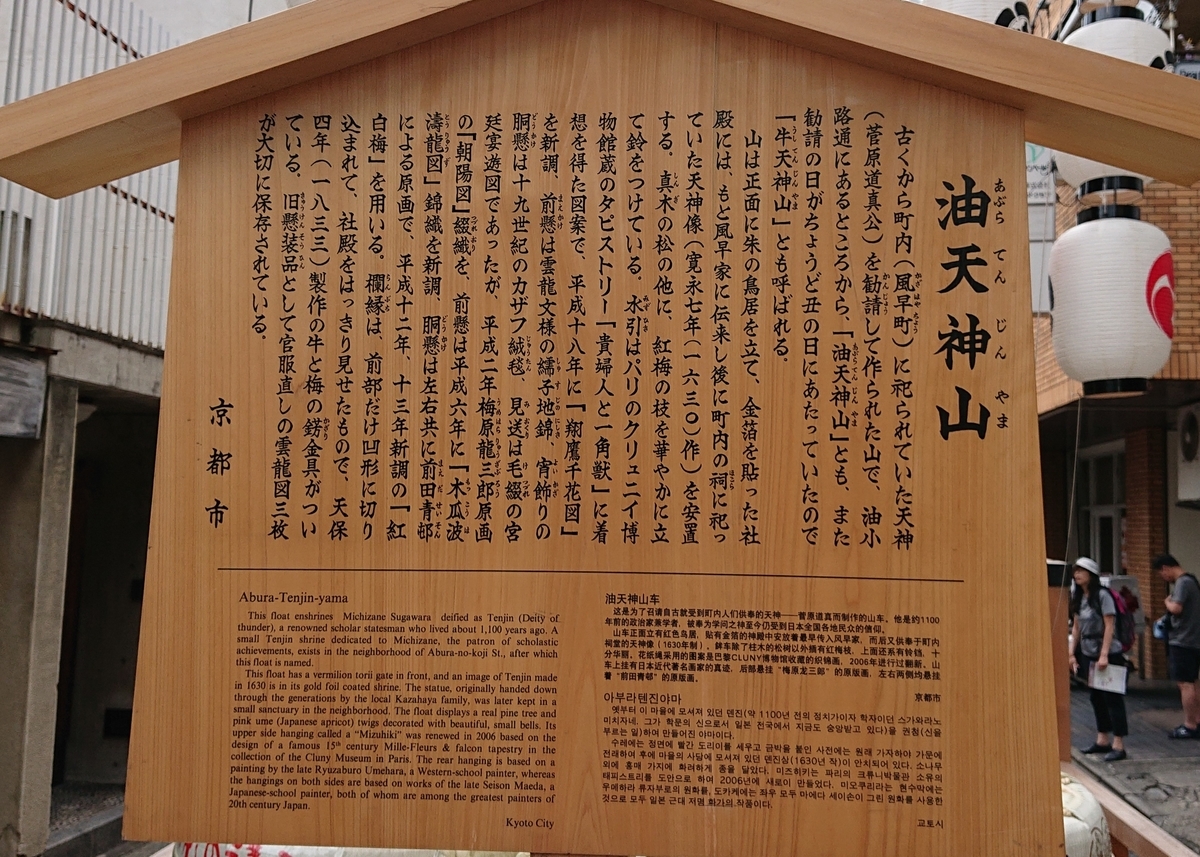 油天神山
古くから町内（風早町）に祀られていた天神
（菅原道真公）を勧請して作られた山で、油小
路通にあるところから、「油天神山」とも、また
勧請の日がちょうど丑の日にあたっていたので
「牛天神山」とも呼ばれる。
山は正面に朱の鳥居を立て、金箔を貼った社
殿には、もと風早家に伝来し後に町内の祠に祀っ
ていた天神像（寛永七年（一六三〇）作）を安置
する。真木の松の他に、紅梅の枝を華やかに立
て鈴をつけている。水引はパリのクリュニイ博
物館蔵のタピストリー「貴婦人と一角獣」に着
想を得た図案で、平成十八年に「翔鷹千花図」
を新調、前懸は雲龍文様の繻子地錦、宵飾りの
胴懸は十九世紀のカザフ絨毯、見送は毛綴の宮
廷宴遊図であったが、平成二年梅原龍三郎原画
の「朝陽図」綴織を、前懸は平成六年に「木瓜波
濤龍図」錦織を新調、胴懸は左右共に前田青邨
による原画で、平成十二年、十三年新調の「紅
白梅」を用いる。欄縁は、前部だけ凹形に切り
込まれて、社殿をはっきり見せたもので、天保
四年（一八三三）製作の牛と梅の錺金具がつい
ている。旧懸装品として官服直しの雲龍図三枚
が大切に保存されている。
京都市
Abura-Tenjin-yama
This float enshrines Michizane Sugawara deified as Tenjin (Deity of
thunder), a renowned scholar statesman who lived about 1,100 years ago. A
small Tenjin shrine dedicated to Michizane, the patron of scholastic
achievements, exists in the neighborhood of Abura-no-koji St., after which
this float is named.
This float has a vermilion torii gate in front, and an image of Tenjin made
in 1630 is in its gold foil coated shrine. The statue, originally handed down
through the generations by the local Kazahaya family, was later kept in a
small sanctuary in the neighborhood. The float displays a real pine tree and
pink ume (Japanese apricot) twigs decorated with beautiful, small bells. Its
upper side hanging called a “Mizuhiki” was renewed in 2006 based on the
design of a famous 15th century Mille-Fleurs & falcon tapestry in the
collection of the Cluny Museum in Paris. The rear hanging is based on a
painting by the late Ryuzaburo Umehara, a Western-school painter, whereas
the hangings on both sides are based on works of the late Seison Maeda, a
Japanese-school painter, both of whom are among the greatest painters of
20th century Japan.
Kyoto City
油天神山车
这是为了召请自古就受到町内人们供奉的天神——菅原道真而制作的山车。他是约1100
年前的政治家兼学者，被奉为学问之神至今仍受到日本全国各地民众的信仰。
山车正面立有红色鸟居，贴有金箔的神殿中安放着最早传入风早家，而后又供奉于町内
祠堂的天神像（1630年制）。鉾车除了柱木的松树以外插有红梅枝，上面还系有铃铛，十
分华丽。花纸绳采用的图案是巴黎CLUNY博物馆收藏的织锦画，2006年进行过翻新。山
车上挂有日本近代著名画家的真迹，后部悬挂“梅原龙三郎”的原版画，左右两侧均悬挂
着“前田青邨”的原版画。
京都市
아부라텐진야마
옛부터 이 마을에 모셔져 있던 덴진(약 1100년 전의 정치가이자 학자이던 스가와라노
미치자네. 그가 학문의 신으로서 일본 전국에서 지금도 숭앙받고 있다)을 권청(신을
부르는 일)하여 만들어진 야마이다.
수레에는 정면에 빨간 도리이를 세우고 금박을 붙인 사전에는 원래 가자하야 가문에
전래하여 후에 마을의 사당에 모셔져 있던 덴진상(1630년 작)이 안치되어 있다. 소나무
외에 홍매 가지에 화려하게 종을 달았다. 미즈히키는 파리의 크류니박물관 소유의
태피스트리를 도안으로 하여 2006년에 새로이 만들었다. 미오쿠리라는 현수막에는
우메하라 류자부로의 원화를, 도카케에는 좌우 모두 마에다 세이손이 그린 원화를 사용한
것으로 모두 일본 근대 저명 화가의 작품이다.
교토시